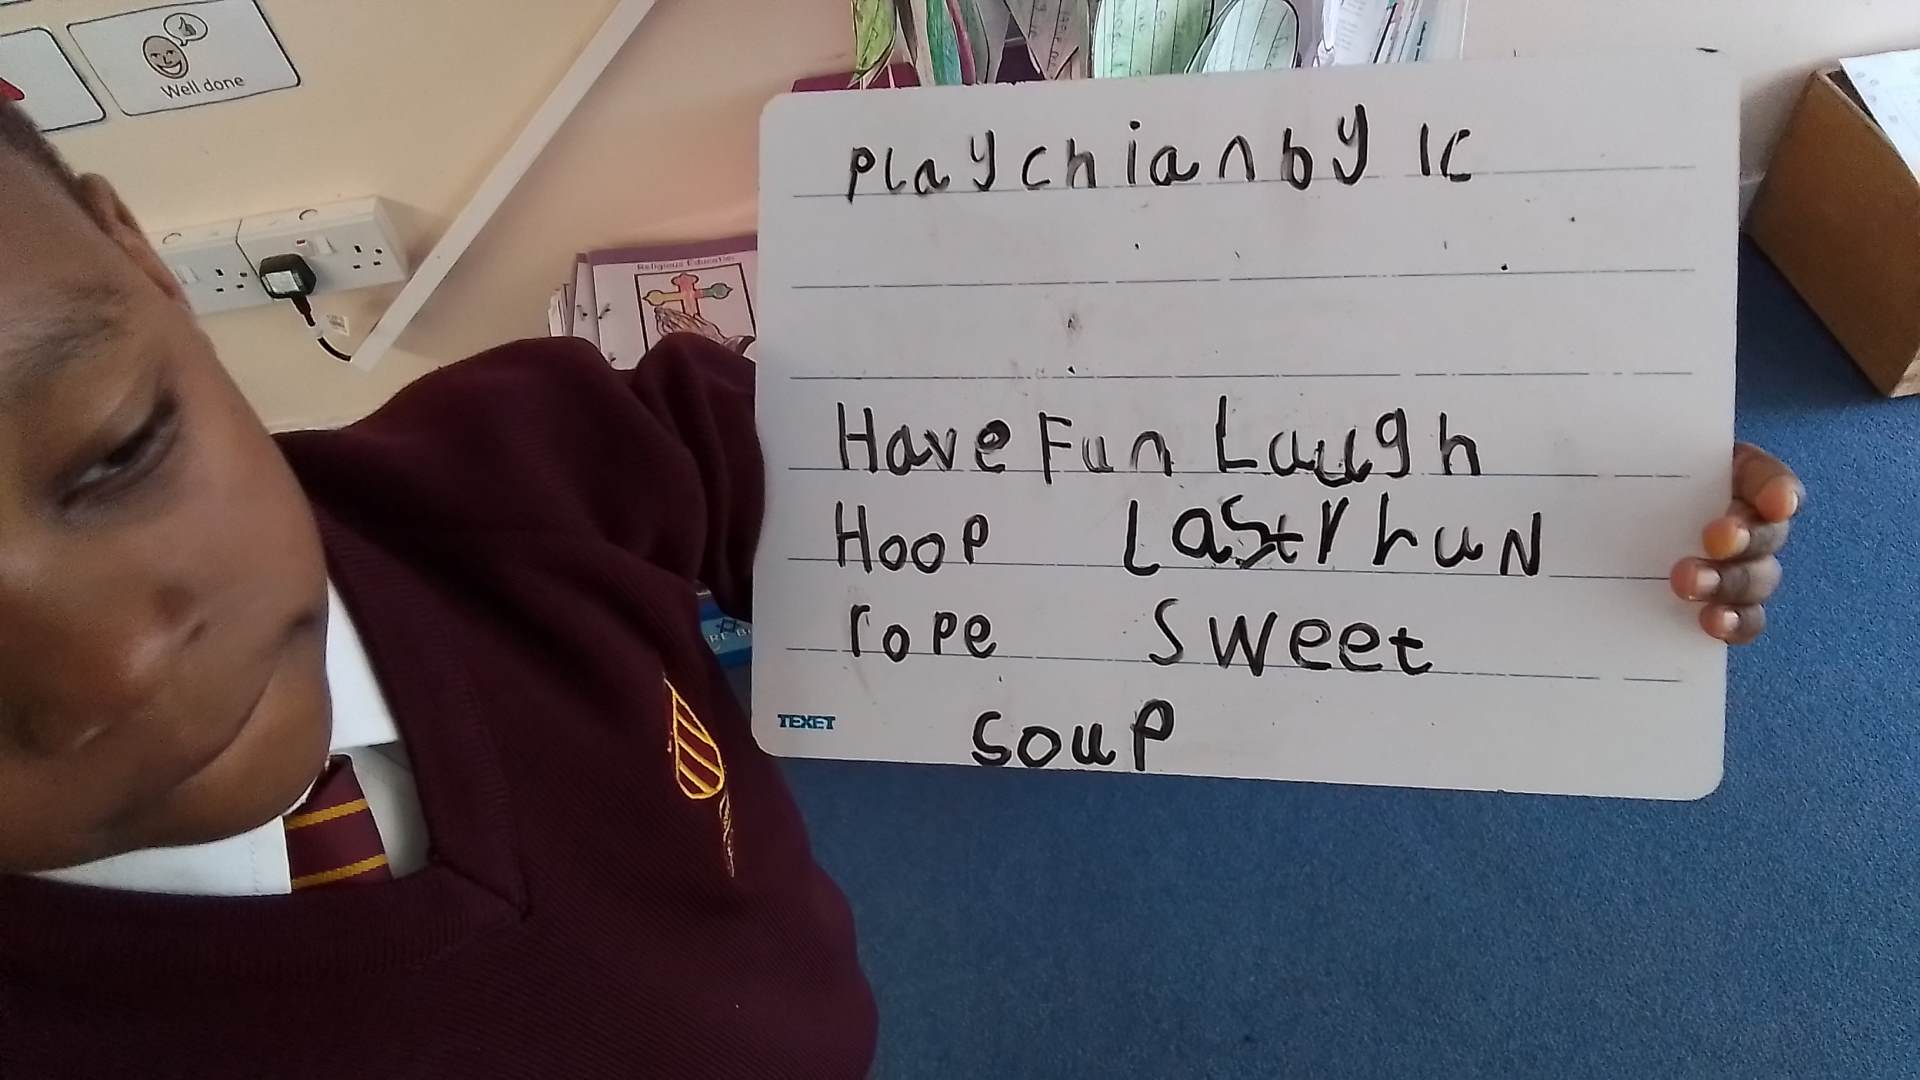 Well done
Religious Education
Playchianby IC
Have Fun Laugh
Hoop Last run
rope Sweet
Soup
TEXET